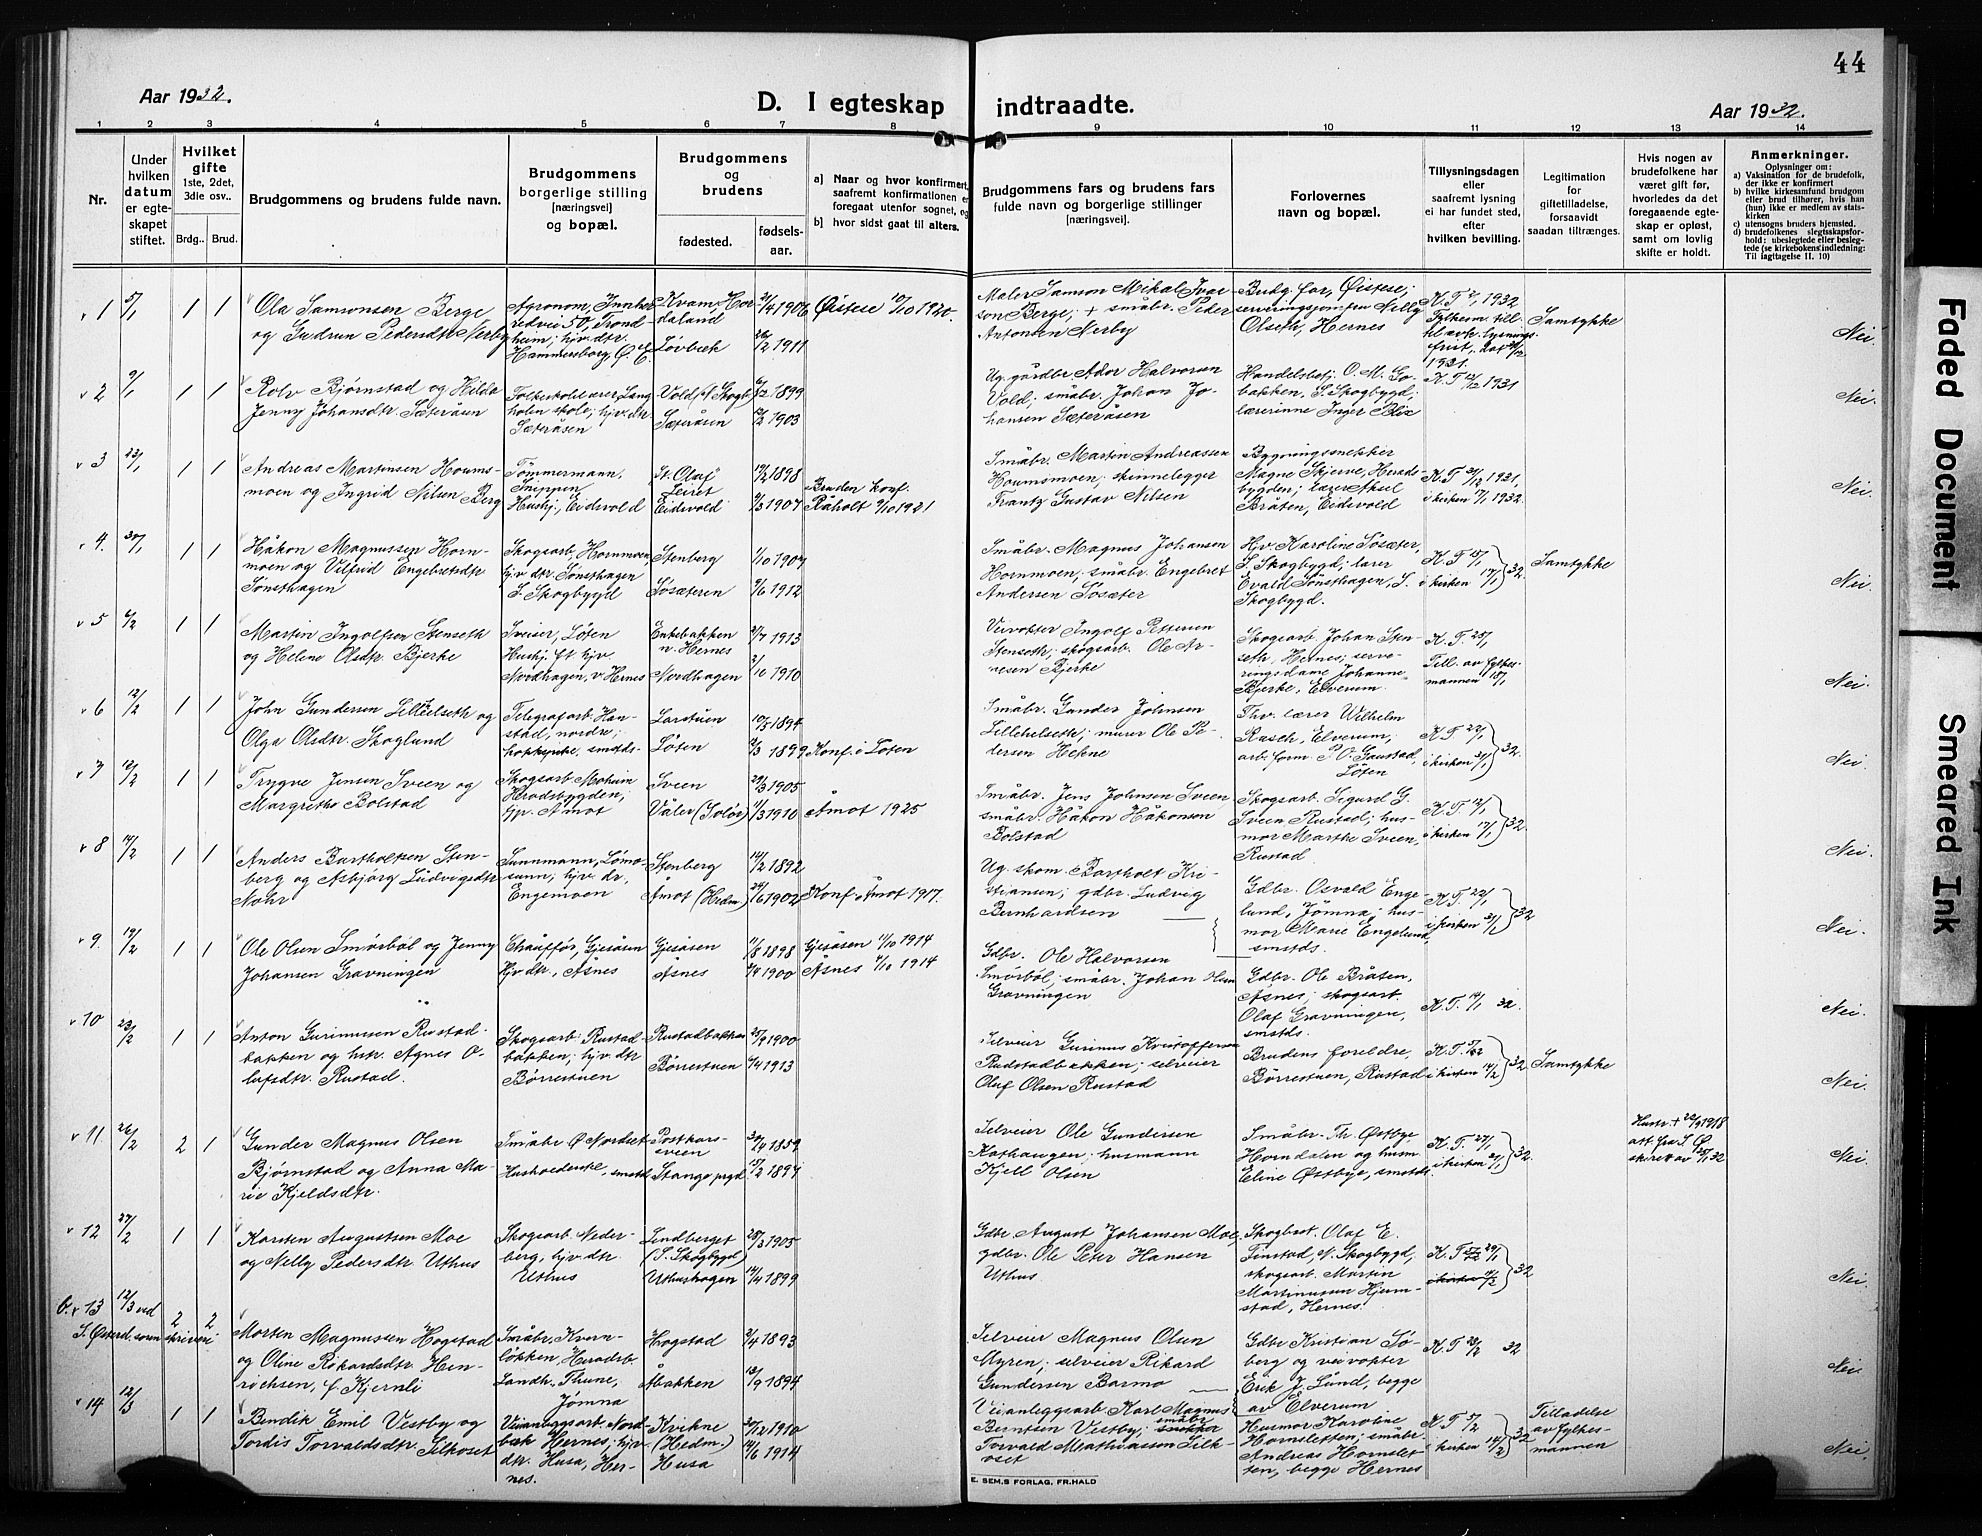 44
Aar 1932.
D. I egteskap indtraadte.
Aar 1932.
1 2 3 4 5 6 7 8 9 10 11 12 13 14
Nr.
Under hvilken datum er egte-skapet stiftet.
Hvilket gifte 1ste, 2det, 3die osv..
Brdg.. Brud.
Brudgommens og brudens fulde navn.
Brudgommens borgerlige stilling [næringsvei] og bopæl.
Brudgommens og brudens
fødested. fødsels-aar.
a) Naar og hvor konfirmert, saafremt konfirmationen er foregaat utenfor sognet, og
b) hvor sidst gaat til alters.
Brudgommens fars og brudens fars fulde navn og borgerlige stillinger [næringsvei].
Forlovernes navn og bopæl.
Tillysningsdagen eller saafremt lysning ei har fundet sted, efter hvilken bevilling.
Legitimation for giftetilladelse, forsaavidt saadan tiltrænges.
Hvis nogen av brudefolkene har været gift før, hvorledes da det foregaaende egte-skap er opløst, samt om lovlig skifte er holdt.
Anmerkninger.
Oplysninger om:
a) Vaksination for de brudefolk, der ikke er konfirmert
b) hvilke kirkesamfund brudgom eller brud tilhører, hvis han (hun) ikke er medlem av stats-kirken
c) utensogns bruders hjemsted.
d) brudefolkenes slegtsskapsfor-hold: ubeslegtede eller besleg-tede (se kirkebokens indledning: Til iagttagelse II. 10)
v 1 5/1 1 1 Ola Samsonsen Berge og Gudrun Pedersdtr Nerby
Agronom, Innher-redsvei 50, Trond-heim; hjv. dtr. Hammersborg, Ø. E.
Kvam, Hor-daland 1906
Løvbek 1911
Øistese 1920.
Maler Samson Mikal Ivar-son Berge; + småbr. Peder Antonsen Nerby
Brudg. far, Øistese; serveringsjomfru Nelly Olseth, Hernes
K. T. 2/1 1932 Samtykke Nei.
v 2 9/1 1 1 Rolv Bjørnstad og Hilda Jenny Johansdtr. Sæteråsen
Folkeskolelærer, Lang-holen skole; hjv. dtr Sæteråsen
1899
Sæteråsen 1903
Ug. gårdbr. Ador Halvorsen Vold; småbr. Johan Jo-hansen Sæteråsen
Handelsbetj. O. M. Go-bakken, S. Skogbygd; lærerinne Inger Blix
K. T. 12/12 1931 Nei.
v 3 23/1 1 1 Andreas Martinsen Houms-moen og Ingrid Nilsen Berg
Tømmermann, Snippen Hushj., Eidsvold
St. Olaf Leiret 1898
Eidsvold 1907
Bruden konf. Råholt 1921
Småbr. Martin Andreassen Houmsmoen; skinnelegger Frantz Gustav Nilsen
Bygningssnekker Magne Skjerve, Herads-bygden; lærer Aksel Bråten, Eidsvold
K. T. 1931, i kirken 17/1 1932. Nei.
v 4. 30/1 1 1 Håkon Magnussen Horn-moen og Vilfrid Engebretsdtr Sønsthagen
Skogsarb., Hornmoen, hjv dtr Sønsthagen S. Skogbygd
Stenberg 1/10 1907
Søsæteren 1912
Småbr. Magnus Johansen Hornmoen; småbr. Engebret Andersen Søsæter
Hjv. Karoline Søsæter, S. Skogbygd; lærer Evald Sønsthagen, S. Skogbygd.
K. T. 15/1 i kirken 17/1 32 Samtykke Nei.
v 5 6/2 1 1 Martin Ingolfsen Stenseth og Helene Olsdtr. Bjerke
Sveiser, Løten Hushj. hjv. Nordhagen, v. Hernes
Enkebakken v. Hernes 1913
Nordhagen 2/10 1910
Veivokter Ingolf Pettersen Stenseth; skogsarb. Ole Ar-nesen Bjerke
Skogsarb. Johan Sten-seth, Hernes; serve-ringsdame Johanne Bjerke, Elverum.
K. T. 25/1 Till. av fylkes-mannen 15/1 Nei.
v 6 12/2 1 1 John Gundersen Lillelseth og Olga Olsdtr. Skoglund
Telegrafarb. Han-stad, nordre; kokkepike, smstds.
Larstuen 10/5 1894
Løten 1899
Konf. i Løten
Småbr. Gunder Johnsen Lillehelseth; murer Ole Pe-dersen Hekne
Thv. lærer Wilhelm Rasch, Elverum; arb. form. P. O. Gaustad, Løten
K. T. 22/1 i kirken 31/1 32. Nei.
v 7 12/2 1 1 Trygve Jensen Sveen og Margrethe Bolstad
Skogsarb. Moheim Heradsbygden; Gp. Åmot
Sveen 29/3 1905
Våler (Solør) 1910
Åmot 1925
Småbr. Jens Johnsen Sveen, småbr. Håkon Håkonsen Bolstad
Skogsarb. Sigurd G. Sveen Rustad; hus-mor Marthe Sveen, Rustad
K. T. 12/1 i kirken 17/1 32. Nei.
v 8 14/2 1 1 Anders Bartholtsen Sten-berg og Asbjørg Ludvigsdtr Nohr
Sunnmann, Lømo-sunn; hjv. dr. Engemoen
Stenberg 14/2 1892
Åmot (Hedm.) 1902
Konf. Åmot 1917.
Ug. skom. Bartholt Kri-stiansen; gdbr. Ludvig Bernhardsen
Gdbr. Osvald Enge-lund, Jømna; hus-mor Marie Engelund, smstds.
K. T. 22/1 i kirken 31/1 32 Nei.
v 9. 19/2 1 1 Ole Olsen Smørbøl og Jenny Johansen Gravningen
Chauffør, Gjesåsen Hjv dtr., Åsnes
Gjesåsen 1898
Åsnes 1900
Gjesåsen 1914
Åsnes 1914
Gdbr. Ole Halvorsen Smørbøl; småbr. Johan Gravningen
Gdbr. Ole Bråten, Åsnes; skogsarb. Olaf Gravningen, smstds.
K. T. 14/1 32. Nei.
v 10 23/2 1 1 Anton Gurinussen Rustad-bakken og hstr. Agnes O-lafsdtr. Rustad.
Skogsarb. Rustad-bakken; hjv. dtr Børrestuen
Rustadbakken 25/9 1900
Børrestuen 1913
Selveier Gurinus Kristoffersen Rustadbakken; selveier Olaf Olsen Rustad
Brudens foreldre, Børrestuen, Rustad
K. T. i kirken 14/2 32 Samtykke Nei.
v 11. 26/2 2 1 Gunder Magnus Olsen Bjørnstad og Anna Ma-rie Kjeldsdtr.
Småbr Ø. Nordset Husholderske, smstds
Postkors-sveen 30/4 1859
Stange prgd. 15/2 1897
Selveier Ole Gundersen Kathaugen; husmann Kjell Olsen
Småbr. Th. Østbye, Horndalen og husm Eline Østbye, smstds
K. T. 27/1 i kirken 32. Hustr. + 1918 att. fra S. Ø. 32 Nei.
v 12 27/2 1 1 Karsten Augustsen Moe og Nelly Pedersdtr. Uthus
Skogsarb. Neder-berg, hjv. dtr. Uthus
Lindberget (S. Skogbygd) 1905
Uthushagen 14/4 1899
Gdbr August Johansen Moe, gdbr. Ole Peter Hansen Uthus
Skogbest. Olaf E. Finstad, N. Skogbygd, skogsarb. Martin Martinussen Hjem-stad, Hernes.
K. T. 29/1 i kirken 14/2 32 Nei.
b. v 13 12/3 ved S. Østerd. soren-skriveri 2 2 Morten Magnussen Hogstad og Oline Rikardsdtr. Hen-richsen, f. Kjernli
Småbr., Kvern-løkken, Heradsb. Landh. Thune, Jømna
Hogstad 1893
Åbakken 13/9 1894
Selveier Magnus Olsen Myren; selveier Rikard Gundersen Barmo
Gdbr Kristian Sø-berg og veivokter Erik J. Lund, begge av Elverum
K. T. 32 Nei.
v 14 12/3 1 1 Bendik Emil Vestby og Tordis Torvaldsdtr. Silkoset
Veianleggsarb. Nord-bek Hernes; hjv. dtr. Husa, Her-nes.
Kvikne (Hedm.) 1910
Husa 14/6 1914
Veianleggsarb. Karl Magnus Berntsen Vestby; småbr Torvald Mathiassen Silk-oset
Husmor Karoline Hornsletten; småbr. Andreas Hornslet-ten, begge Hernes
K. T. 5/2 i kirken 14/2 32 Tilladelse av fylkes-mannen Nei.
E. SEM.S FORLAG, FR.HALD
Faded Document
Smeared Ink